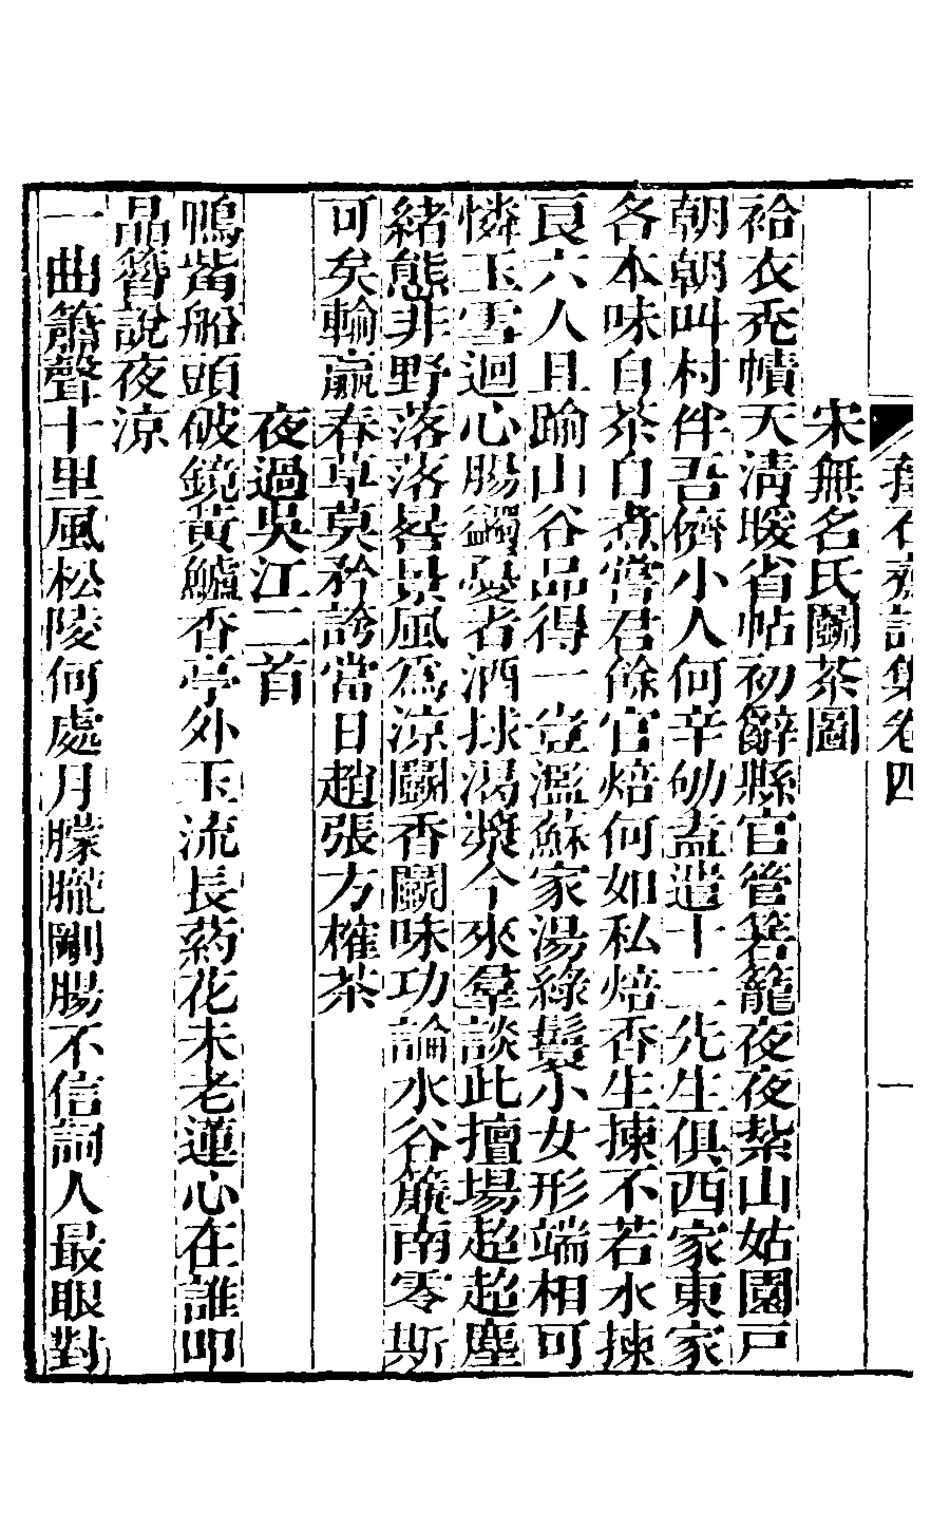 石齋詩集卷四
一
宋無名氏鬭茶圖
袷衣禿幘天淸暖省帖初辭縣官管箬籠夜夜紮山姑園戸
朝朝叫村伴吾儕小人何辛劬盍遣十二先生俱西家東家
各本味自茶自煮嘗君餘官焙何如私焙香生揀不若水揀
良六人且踰山谷品得一壹濫蘇家湯綠鬟小女形端相可
憐玉雪迴心腸蠲憂者酒捄渴漿今來羣談此擅場趁趁塵
緒態非野落落晷景風爲涼鬭香鬭味功論水谷簾南零斯
可矣輸贏春草莫矜誇當日趙張方榷茶
夜過吳江二首
鴨觜船頭破鏡黃鱸香亭外玉流長葯花未老蓮心在誰叩
晶簪說夜涼
一曲簫聲十里風松陵何處月朦朧剛腸不信詞人最眼對